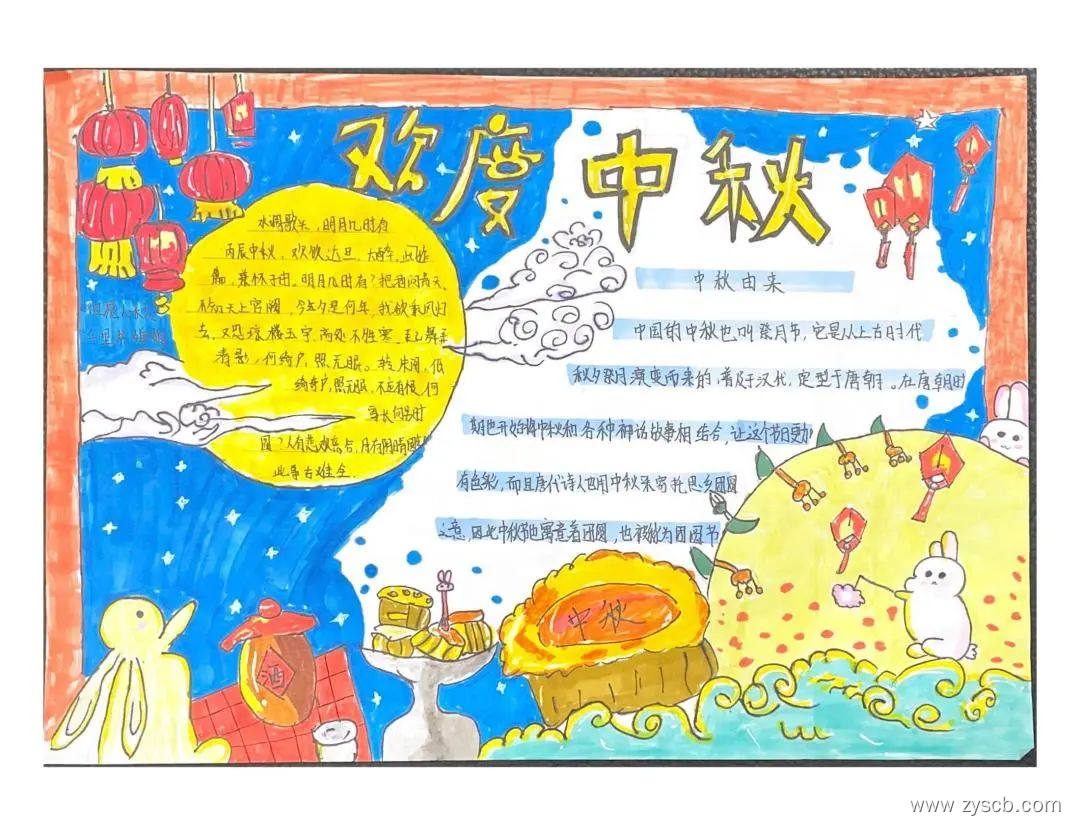 欢度中秋
水调歌头，明月几时有
丙辰中秋，欢饮达旦，大醉，作此
篇，兼怀子由。明月几时有？把酒问青天，
不知天上宫阙，今夕是何年，我欲乘风归
去，又恐琼楼玉宇，高处不胜寒，起舞弄
清影，何绮户，照无眠。转朱阁，低
绮户，照无眠，不应有恨，何
事长向别时
圆？人有悲欢离合，月有阴晴圆缺
此事古难全
但愿人长久
千里共婵娟
中秋由来
中国的中秋也叫祭月节，它是从上古时代
秋夕祭月演变而来的，普及于汉代，定型于唐朝。在唐朝时
期也开始将中秋和各种神话故事相结合，让这个节日更加
有色彩，而且唐代诗人也用中秋来寄托思乡团圆
之意，因此中秋节也寓意着团圆，也被称为团圆节
中秋
酒
www.zyscb.com